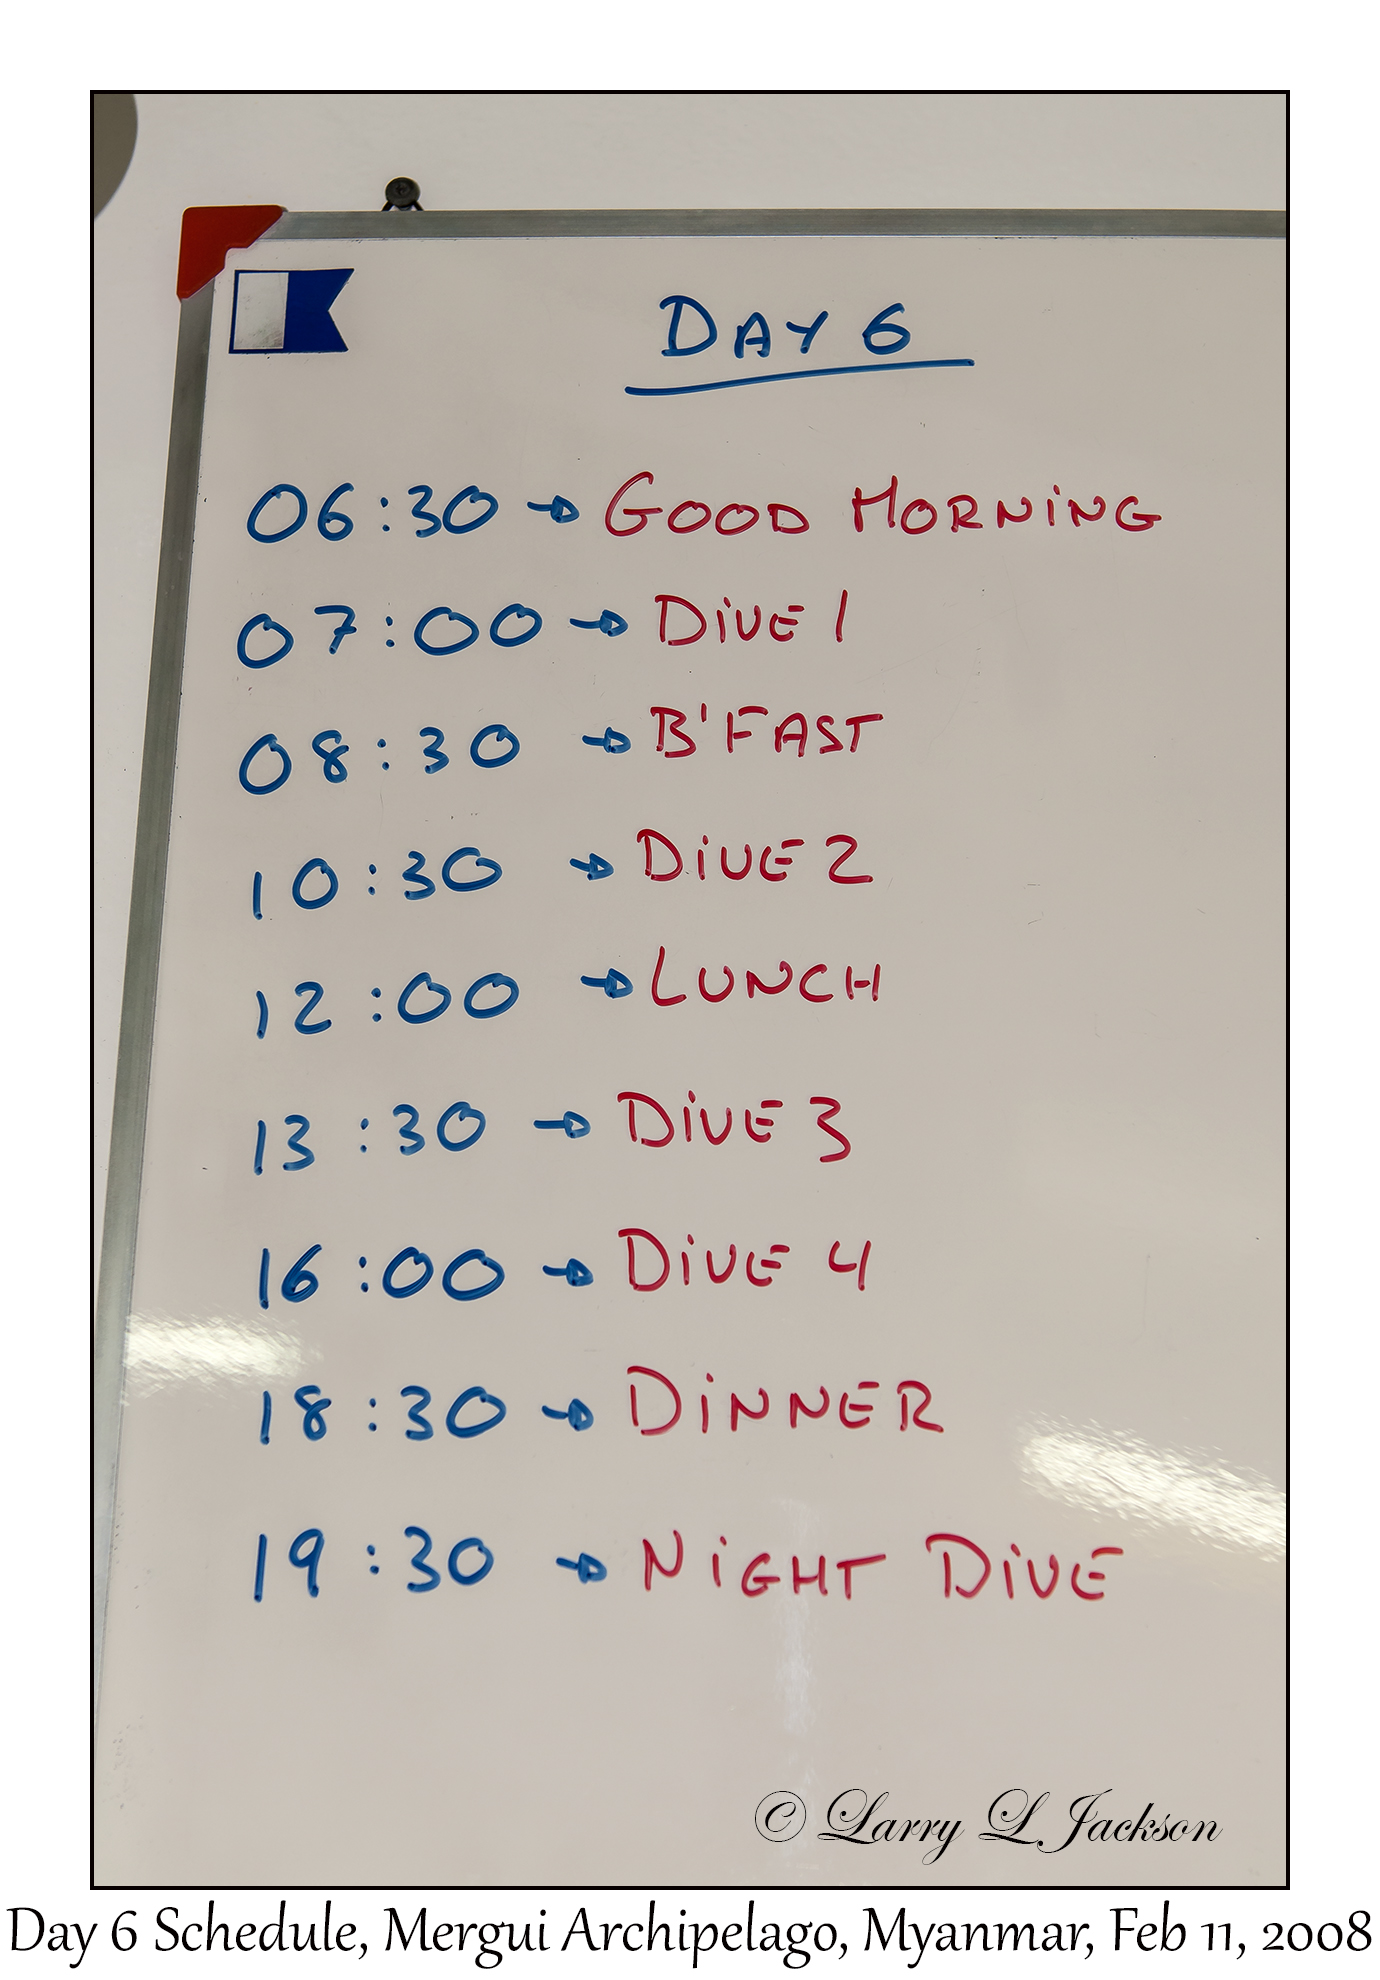 DAY 6
06:30 → GOOD MORNING
07:00 → DIVE 1
08:30 → B'FAST
10:30 → DIVE 2
12:00 → LUNCH
13:30 → DIVE 3
16:00 → DIVE 4
18:30 → DINNER
19:30 → NIGHT DIVE
© Larry L Jackson
Day 6 Schedule, Mergui Archipelago, Myanmar, Feb 11, 2008